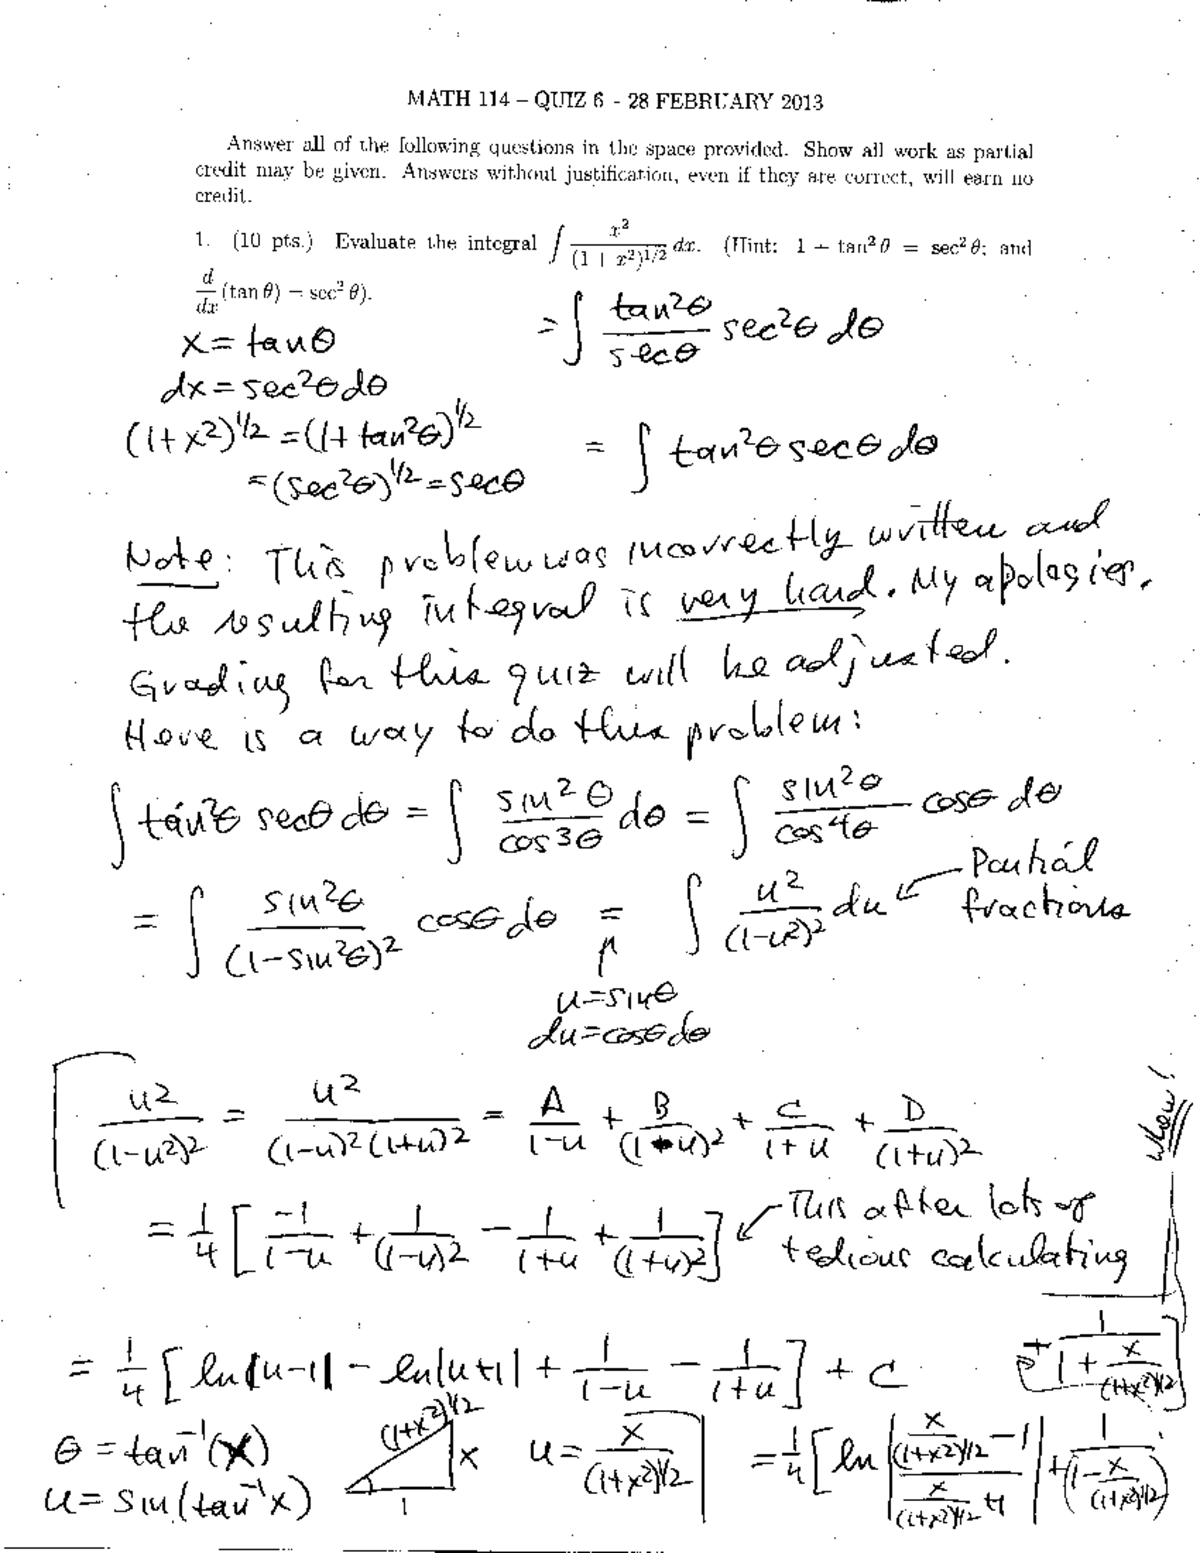 MATH 114 – QUIZ 6 - 28 FEBRUARY 2013
Answer all of the following questions in the space provided. Show all work as partial
credit may be given. Answers without justification, even if they are correct, will earn no
credit.
1. (10 pts.) Evaluate the integral ∫ x²/(1 + x²)^1/2 dx. (Hint: 1 + tan² θ = sec² θ; and
d/dx (tan θ) = sec² θ).
x = tanθ
= ∫ tan²θ/secθ sec²θ dθ
dx = sec²θdθ
(1+x²)^1/2 = (1+tan²θ)^1/2
= ∫ tan²θ secθ dθ
= (sec²θ)^1/2 = secθ
Note: This problem was incorrectly written and
the resulting integral is very hard. My apologies.
Grading for this quiz will be adjusted.
Here is a way to do this problem:
∫ tan²θ secθ dθ = ∫ sin²θ/cos³θ dθ = ∫ sin²θ/cos⁴θ cosθ dθ
= ∫ sin²θ/(1-sin²θ)² cosθ dθ = ∫ u²/(1-u²)² du ← Partial
fractions
↑
u = sinθ
du = cosθdθ
u²/(1-u²)² = u²/(1-u)²(1+u)² = A/1-u + B/(1-u)² + C/1+u + D/(1+u)²
= 1/4 [ -1/1-u + 1/(1-u)² - 1/1+u + 1/(1+u)² ] ← This after lots of
tedious calculating
whew!
= 1/4 [ ln|u-1| - ln|u+1| + 1/1-u - 1/1+u ] + C
θ = tan⁻¹(x)
u = sin(tan⁻¹x)
(1+x²)^1/2
x
1
u = x/(1+x²)^1/2
= 1/4 [ ln | (x/(1+x²)^1/2 - 1)/(x/(1+x²)^1/2 + 1) | + 1/(1 - x/(1+x²)^1/2)
+ 1/(1 + x/(1+x²)^1/2) ]